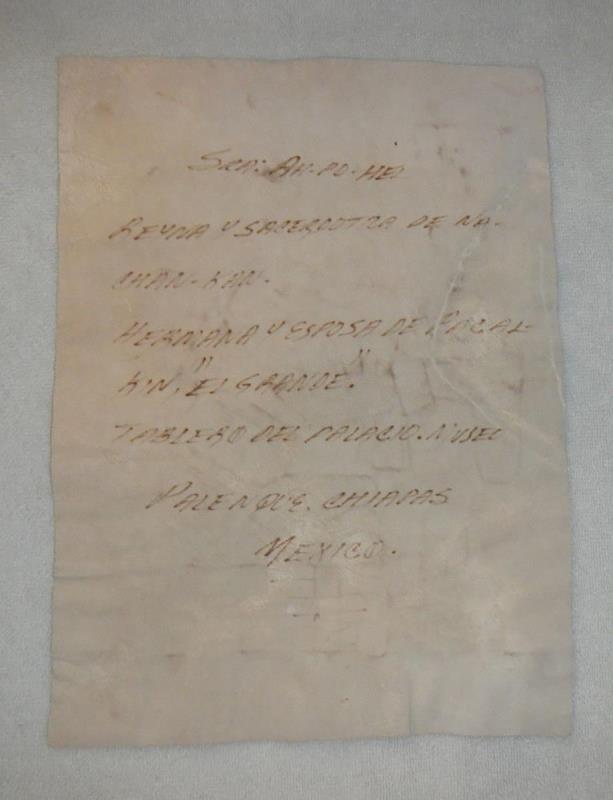 SRA: AH-PO-HEL
REYNA Y SACERDOTZA DE NA-
CHAN-KAN.
HERMANA Y ESPOSA DE PACAL-
KIN, "EL GRANDE."
TABLERO DEL PALACIO. MUSEO
PALENQUE. CHIAPAS
MEXICO.